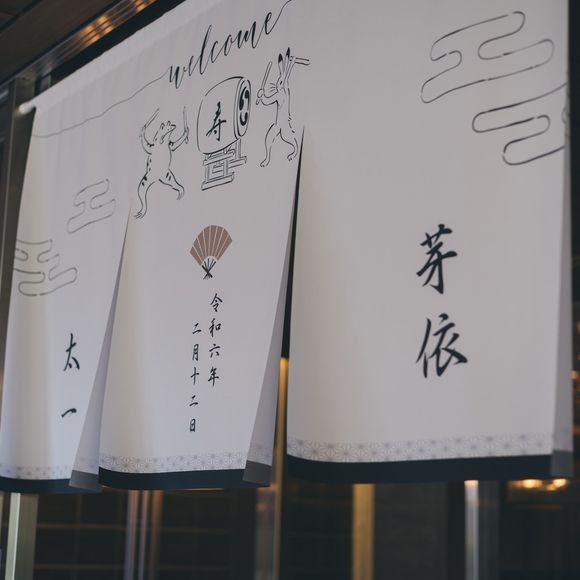 welcome
寿
芽依
令和六年
二月十二日
太一